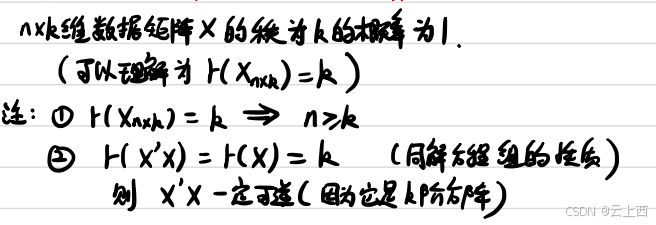 n×k维数据矩阵X的秩为k的概率为1.
(可以理解为 r(Xₙₓₖ)=k)
注: ① r(Xₙₓₖ)=k ⇒ n≥k
② r(X'X)=r(X)=k (同解方程组的性质)
则 X'X一定可逆(因为它是k阶方阵)
CSDN @云上西